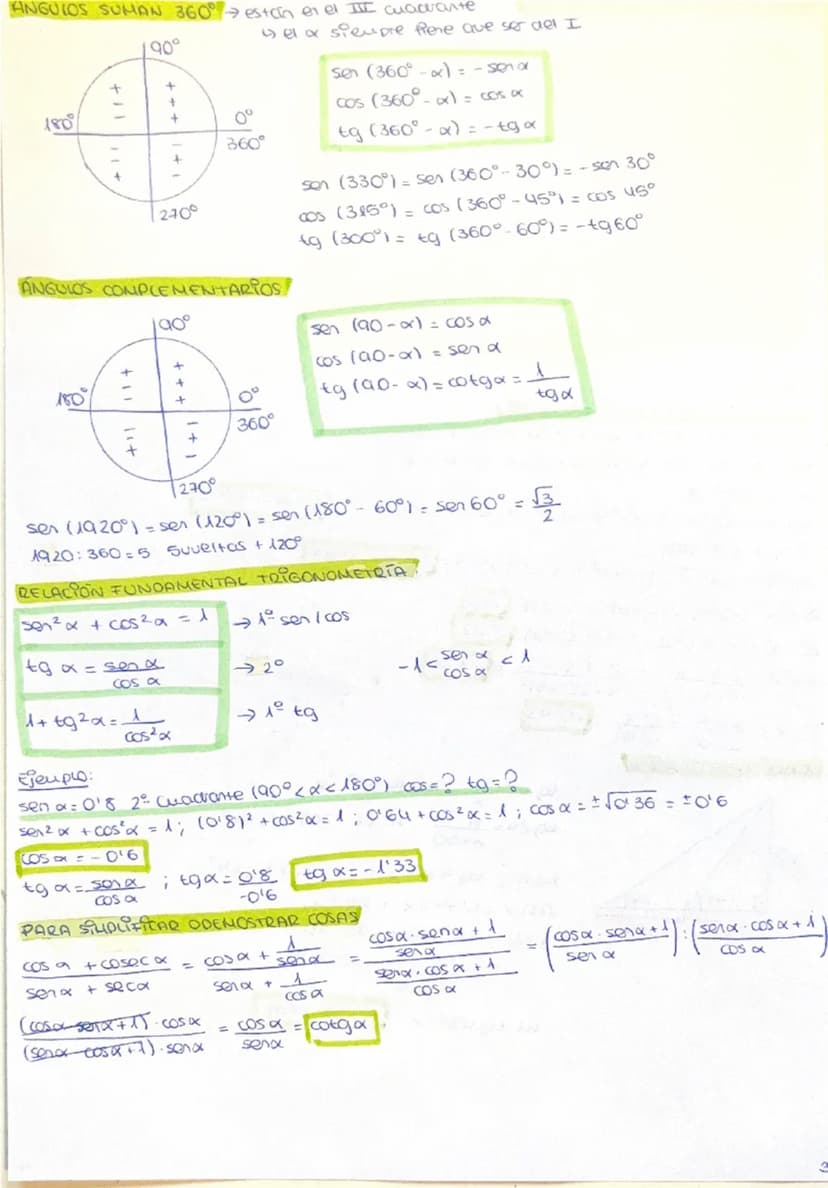 ÁNGULOS SUMAN 360° → están en el III cuadrante
↳ el α siempre tiene que ser del I
90°
180°
0°
360°
270°
+ + + +
- - + +
- - + +
- - - -
- - + +
+ + - -
sen (360° - α) = - sen α
cos (360° - α) = cos α
tg (360° - α) = - tg α
sen (330°) = sen (360° - 30°) = - sen 30°
cos (315°) = cos (360° - 45°) = cos 45°
tg (300°) = tg (360° - 60°) = - tg 60°
ÁNGULOS COMPLEMENTARIOS
90°
180°
0°
360°
270°
sen (90 - α) = cos α
cos (90 - α) = sen α
tg (90 - α) = cotg α = 1/tg α
sen (1920°) = sen (120°) = sen (180° - 60°) = sen 60° = √3/2
1920 : 360 = 5 5 vueltas + 120°
RELACIÓN FUNDAMENTAL TRIGONOMETRÍA:
sen² α + cos² α = 1 → 1º sen / cos
tg α = sen α/cos α → 2º -1 < sen α cos α < 1
1 + tg² α = 1/cos² α → 1º tg
Ejemplo:
sen α = 0'8 2º cuadrante (90° < α < 180°) cos = ? tg = ?
sen² α + cos² α = 1; (0'8)² + cos² α = 1; 0'64 + cos² α = 1; cos α = ±√0'36 = ±0'6
cos α = - 0'6
tg α = sen α/cos α ; tg α = 0'8/-0'6 tg α = - 1'33
PARA SIMPLIFICAR O DEMOSTRAR COSAS
(cos α + cosec α)/(sen α + sec α) = (cos α + 1/sen α)/(sen α + 1/cos α) = ((cos α · sen α + 1)/sen α)/((sen α · cos α + 1)/cos α) = ((cos α · sen α + 1)/sen α) : ((sen α · cos α + 1)/cos α)
((cos α sen α + 1) · cos α)/((sen α cos α + 1) · sen α) = cos α/sen α = cotg α